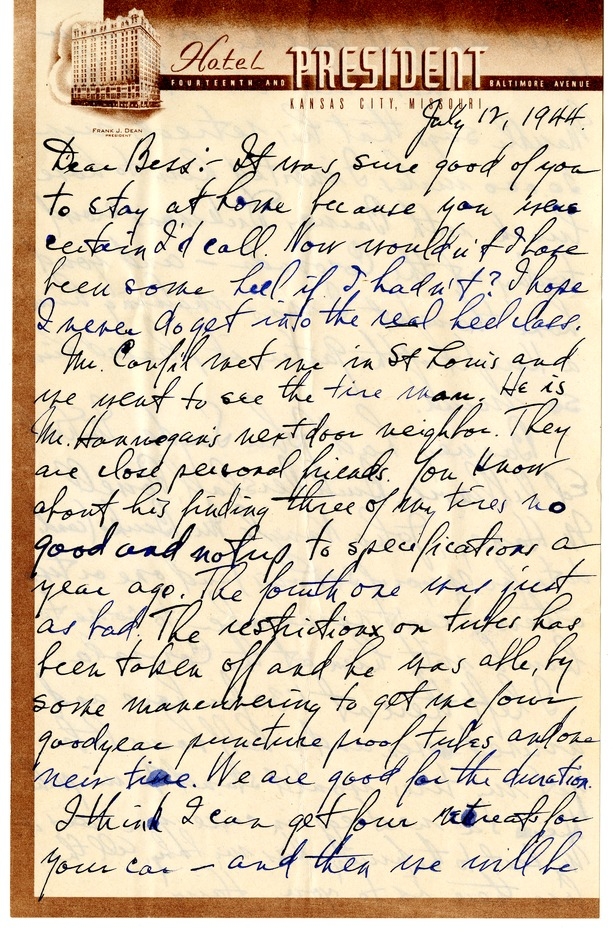 Hotel PRESIDENT
FOURTEENTH AND BALTIMORE AVENUE
KANSAS CITY, MISSOURI
FRANK J. DEAN
PRESIDENT
July 12, 1944.
Dear Bess:- It was sure good of you
to stay at home because you were
certain I'd call. Now wouldn't I have
been some heel if I hadn't? I hope
I never do get into the real heel class.
Mr. Canfil met me in St Louis and
we went to see the tire man. He is
Mr. Hannegan's next door neighbor. They
are close personal friends. You know
about his finding three of my tires no
good and not up to specifications a
year ago. The fourth one was just
as bad. The restrictions on tubes has
been taken off and he was able, by
some maneuvering to get me four
goodyear puncture proof tubes and one
new tire. We are good for the duration.
I think I can get four retreads for
your car — and then we will be